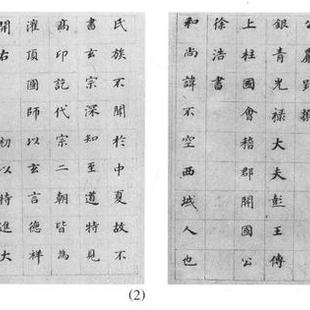 公嚴郢撰
銀青光祿大夫彭王傅
上柱國會稽郡開國公
徐浩書
和尚諱不空西域人也
氏族不聞於中夏故不
書玄宗深知至道特見
高印訖代宗二朝皆為
灌頂國師以玄言德祥
開右 初以特進大
(2)